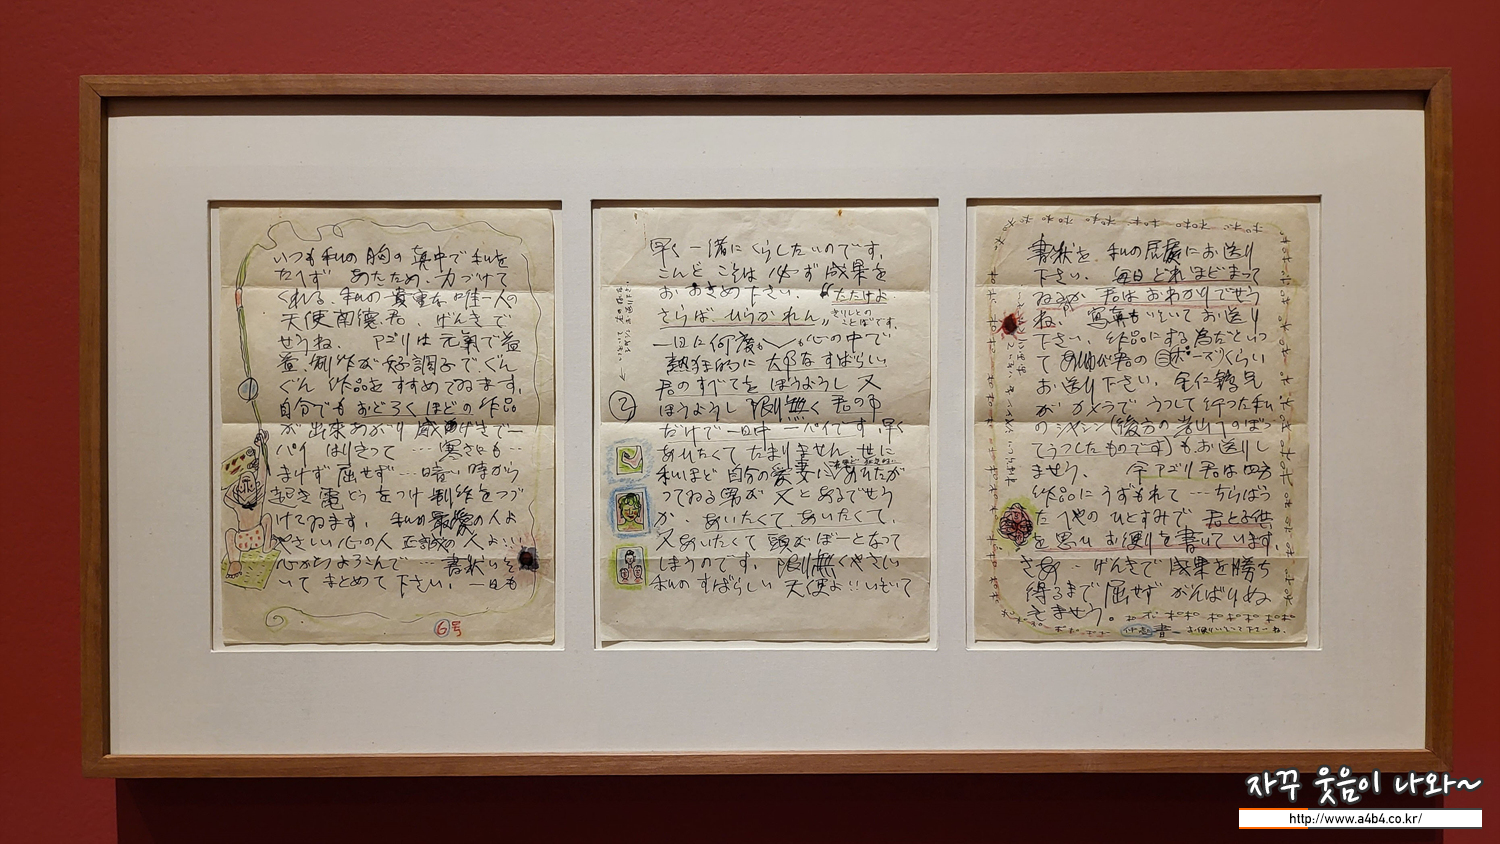 いつも私の胸の真中で私を
たへず あたため、力づけて
くれる、私の貴重な唯一人の
天使南徳君、げんきで
せうね。アゴリは元氣で益
益、制作が好調子でぐん
ぐん 作品をすすめてゐます。
自分でもおどろくほどの作品
が出来あがり 威勢で一
パイ はりきって‥‥寒さにも‥
まけず 屈せず‥‥暗い時から
起き電とうをつけ制作をつづ
けてゐます。私の最愛の人よ
やさしい心の人
心からよろこんで‥‥書状を
いて まとめて 下さい。一日も
⑥号
早く 一緒に くらしたいのです。
こんど こそは 必ず 成果を
お おさめ下さい。“たたけよ
さらば、ひらかれん„ きりしとの
ことばです。
一日に何度か 心の中で
熱狂的に 大好なすばらしい
君のすべてを ほうようし 又
ほうようし 限り無く 君の事
だけで 一日中 一パイです。早く
あいたくて たまりません。世に
私ほど 自分の愛妻に あいたが
ってゐる男が 又とあるでせう
か。あいたくて、あいたくて、
又あいたくて 頭がぼーとなって
しまうのです。限り無くやさしい
私の すばらしい 天使よ‥いそいで
②
書状を 私の 部屋にお送り
下さい。毎日 どれほどまって
ゐるか 君はおわかりでせう
ね。寫真もいそいでお送り
下さい。作品にする為だといっ
て 君の ポーズくらい
お送り下さい。
が カメラで うつして行った私
のシャシン(後方の岩山へのぼっ
てうつしたものです)もお送りし
ませう。今アゴリ君は四方
作品にうずもれて‥‥ちらばっ
た へやの ひとすみで 君と子供
を思ひ お便りを書いています
さあ‥げんきで 成果を勝ち
得るまで 屈せず がんばりぬ
きませう。
자꾸 웃음이 나와~
http://www.a4b4.co.kr/